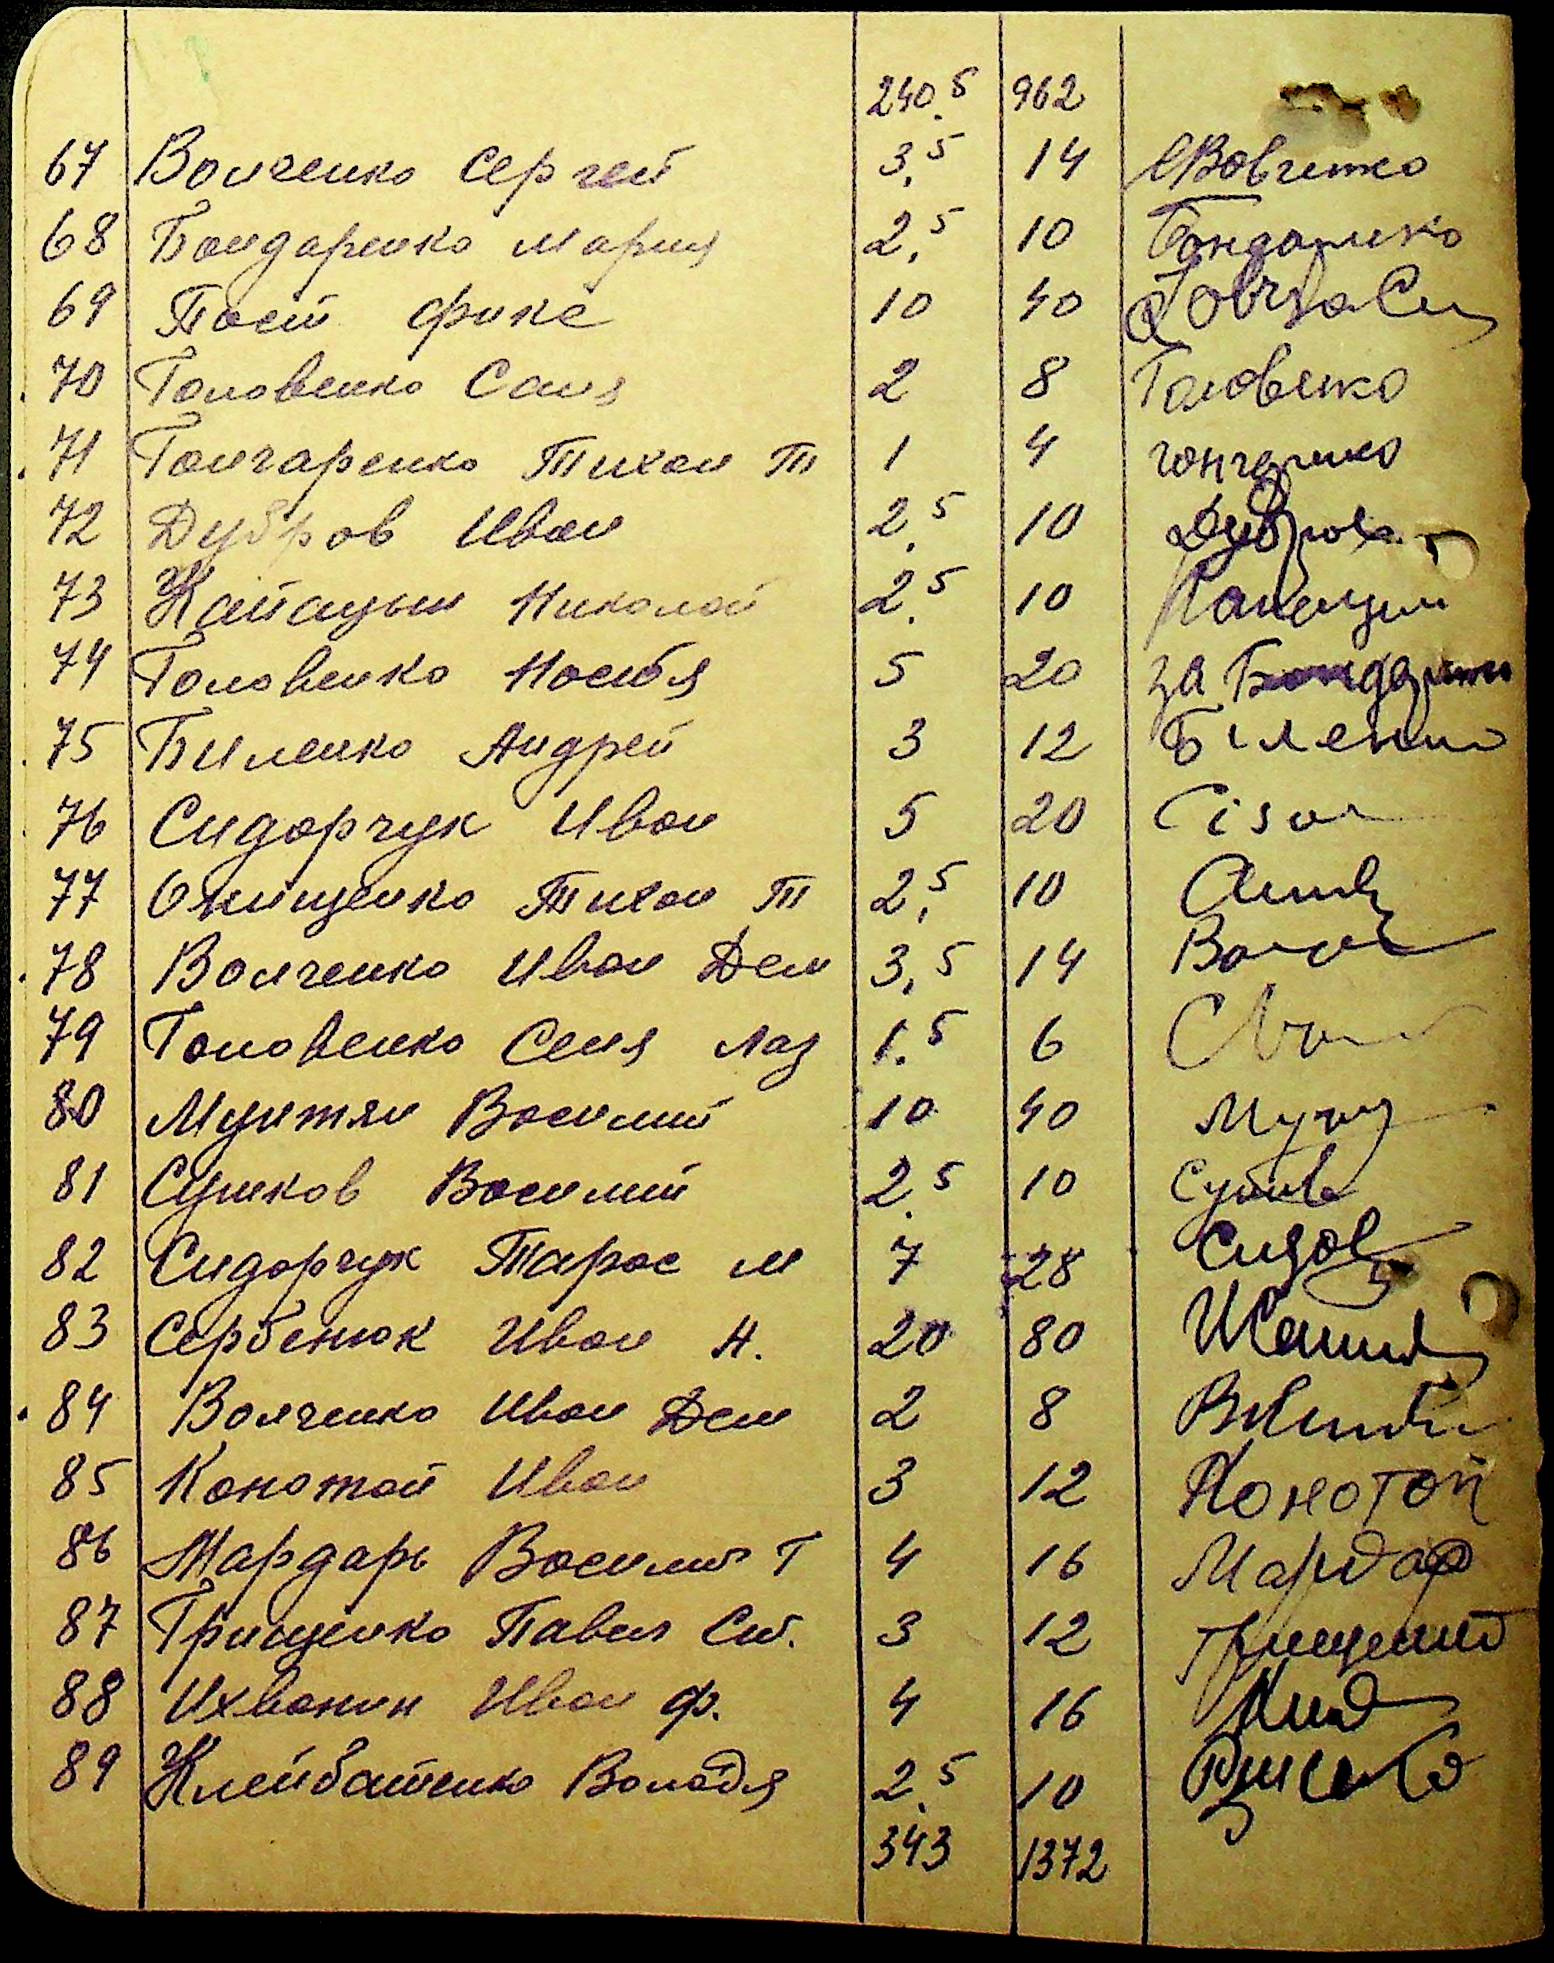 240.5 962
67 Волченко Сергей 3,5 14 Вовченко
68 Бондаренко Мария 2,5 10 Бондаренко
69 10 40
70 Головенко Саня 2 8 Головенко
71 Гончаренко Тихон Т 1 4 гончаренко
72 Дубров Иван 2.5 10 Дубров
73 Капацын Николай 2.5 10 Капацын
74 Головенко Настя 5 20 за Бондаренко
75 Биленко Андрей 3 12 Біленко
76 Сидорчук Иван 5 20
77 Онищенко Тихон Т 2,5 10
78 Волченко Иван Дем 3,5 14
79 Головенко Сеня Лаз 1.5 6
80 Мунтян Василий 10 40
81 Сушков Василий 2.5 10
82 Сидорчук Тарас М 7 28 Сидор
83 Сербенюк Иван Н. 20 80
84 Волченко Иван Дем 2 8
85 Конотоп Иван 3 12 Конотоп
86 Мардарь Василий Г 4 16 Мардар
87 Грищенко Павел См. 3 12 Грищенко
88 Ихванин Иван Ф. 4 16
89 Клейбатенко Володя 2.5 10
343 1372